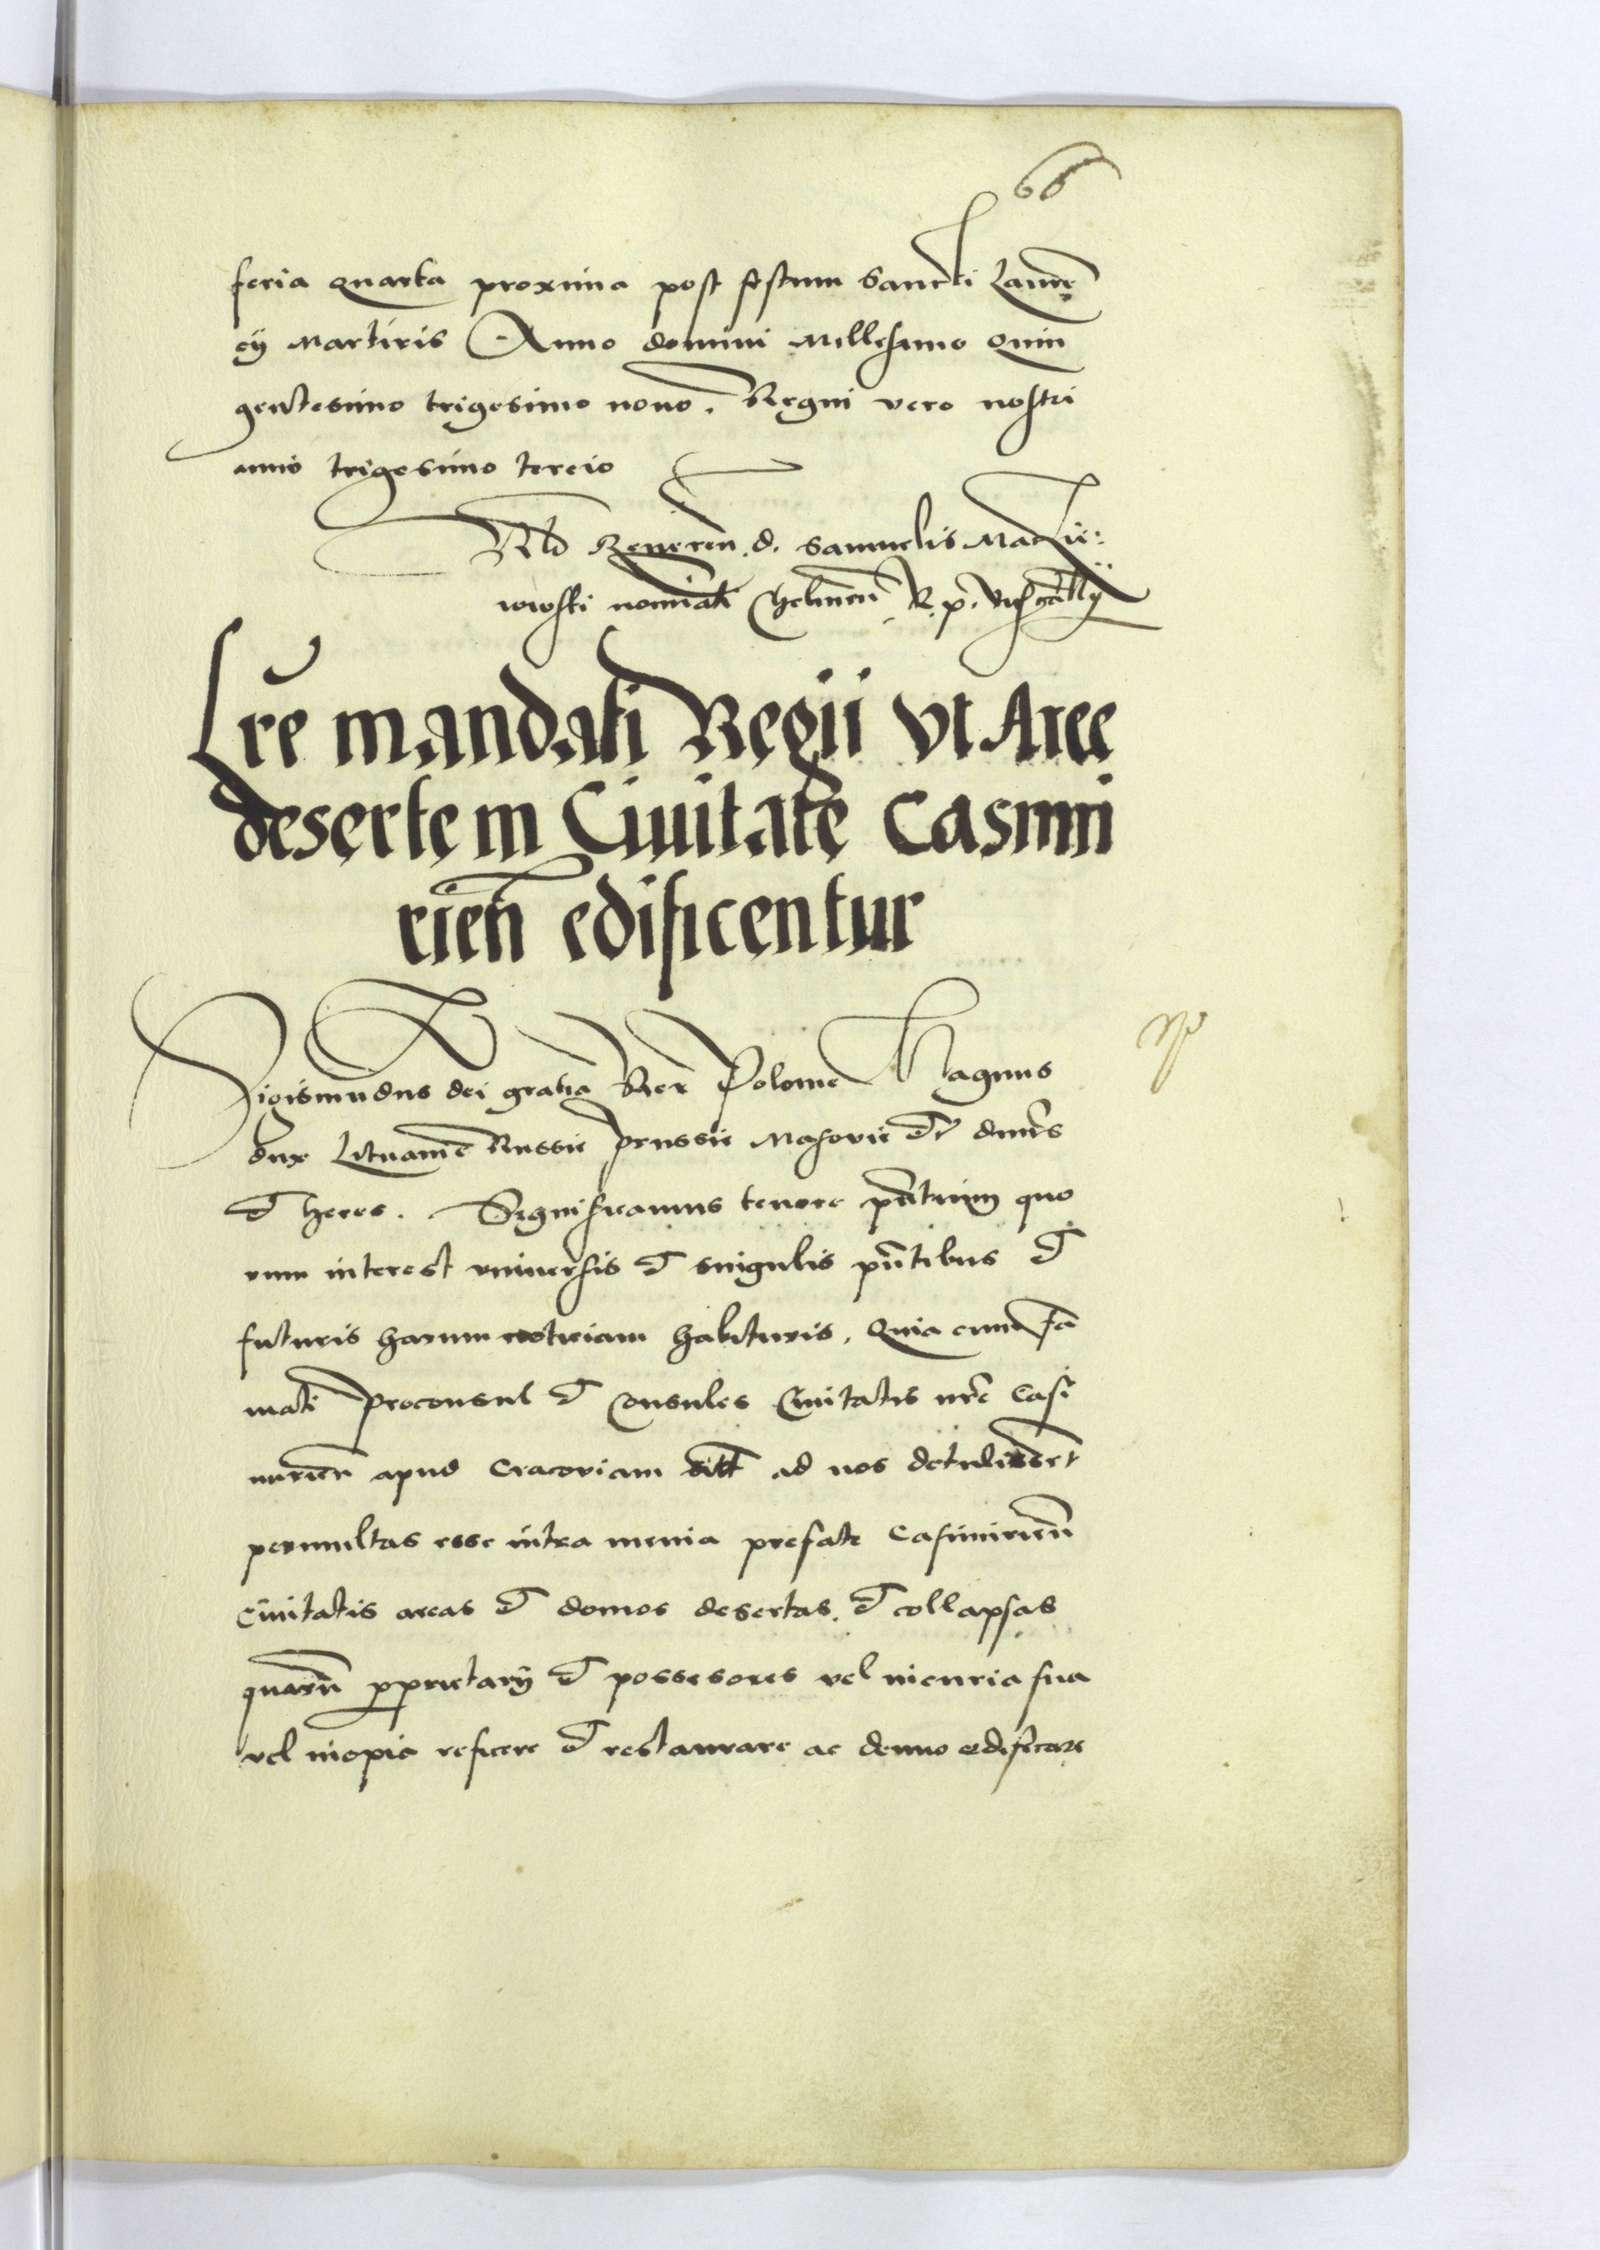 66
feria quarta proxima post festum Sancti Lauren
cÿ Martiris Anno domini Millesimo quin
gentesimo trigesimo nono. Regni vero nostri
anno trigesimo tercio
Rlō Reueren. d. Samuelis Macÿe:
iowski nominati Chelmen̄ R. p. vicecancllÿ
Lrē mandati Regii vt Aree
deserte in Ciuitatē Casimi
rien̄ edificentur
Sigismūdus dei gratia Rex Polonie Magnus
dux Lituanie Russie prussie Masovie et dn̄us
et heres. Significamus tenore pn̄tium quo
rum interest vniuersis et singulis pn̄tibus et
futuris harum noticiam habituris. Quia cum fa
mati Proconsul et Consules Ciuitatis nr̄e Casi
mirien̄ apud Cracoviam ad nos detulissent
permultas esse intra menia prefate Casimirien̄
Ciuitatis areas et domos desertas et collapsas
quarū proprietarÿ et possesores vel incuria sua
vel inopia reficere et restaurare ac denuo edificare